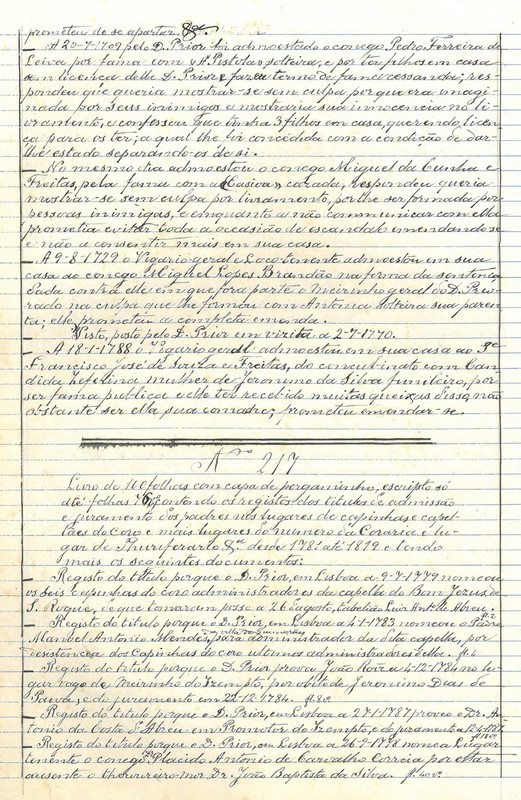 prometeu de se apartar, &ca.
— A 20-7-1709 pelo D. Prior foi admoestado o conego Pedro Ferreira de
Leiva por fama com solteira, e por ter filhos em casa
sem licença delle D. Prior e fazer termo de fama cessando; res-
pondeu que queria mostrar-se sem culpa porque era imagi-
nada por seus inimigos e mostraria sua innocencia no li-
vramento, e confessou que tinha 3 filhos em casa, querendo licen-
ça para os ter; a qual lhe foi concedida com a condição de dar-
lhe estado separando-os de si.
— No mesmo dia admoestou o conego Miguel da Cunha e
Freitas, pela fama com a casada, respondeu queria
mostrar-se sem culpa por livramento, por lhe ser formada por
pessoas inimigas, e emquanto a não communicar com ella
prometia evitar toda a occasião de escandalo emendando-se
e não a consentir mais em sua casa.
— A 9-8-1729 o Vigario geral e Locotenente admoestou em sua
casa ao conego Miguel Lopes Brandão na forma da sentença
dada contra elle em que fora parte o Meirinho geral do D. Prio-
rado na culpa que lhe formou com Antonia solteira sua paren-
ta; elle prometeu a completa emenda.
Visto, posto pelo D. Prior em visita a 2-7-1770.
— A 18-1-1788 o Vigario geral admoestou em sua casa ao Pe
Francisco José de Souza e Freitas, do concubinato com Can-
dida Zeferina mulher de Jeronimo da Silva funileiro, por
ser fama publica e elle ter recebido muitas queixas disso, não
obstante ser ella sua comadre; prometeu emendar-se.
No 217
Livro de 100 folhas com capa de pergaminho, escripto só
até folhas contendo os registos dos titulos de admissão
e juramento dos padres nos lugares de capinhas e capel-
lães do coro e mais lugares do numero da Coraria e lu-
gar de Thuriferario &ca desde 1781 até 1819 e tendo
mais os seguintes documentos:
— Registo do titulo porque o D. Prior, em Lisboa a 9-7-1779 nomeou
os seis capinhas do coro administradores da capella do Bom Jezus, de
S. Roque, de que tomaram posse a 2 d'Agosto, tabelião Luiz Anto de Abreu.
— Registo do titulo porque o D. Prior, em Lisboa a 4-1-1783 nomeou o Padre
Manoel Antonio Mendes, para administrador da dita capella, por
desistencia dos Capinhas do coro ultimos administradores d'ella. fl. 4
— Registo do titulo porque o D. Prior proveu João Roiz a 4-12-1784 no lu-
gar vago de Meirinho do Izempto, por obito de Jeronimo Dias de
e do juramento em 22-12-1784.
— Registo do titulo porque o D. Prior, em Lisboa a 27-1-1787 proveu o Dr. An-
tonio da Costa e Abreu em Promotor do Izempto, e do juramento a
— Registo do titulo porque o D. Prior, em Lisboa a nomea Lugar
tenente o conego Placido Antonio de Carvalho Correia por estar
ausente o thesoureiro-mor Dr. João Baptista da Silva.